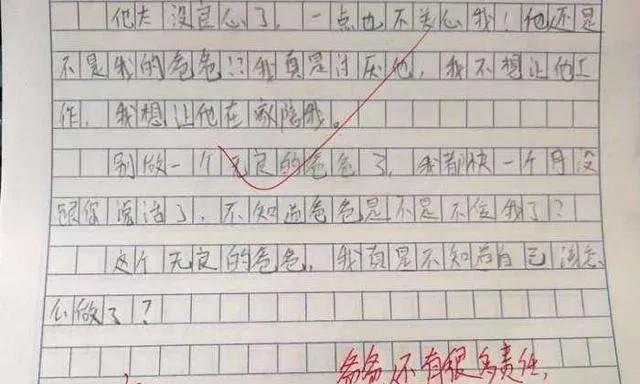 他太没良心了，一点也不关心我！他还是
不是我的爸爸!?我真是讨厌他，我不想让他工
作，我想让他在家陪我。
别做一个无良的爸爸了，我都快一个月没
跟你说话了，不知道爸爸是不是不信我了？
这个无良的爸爸，我真是不知道自己该怎
么做了？
爸爸还有很多责任，